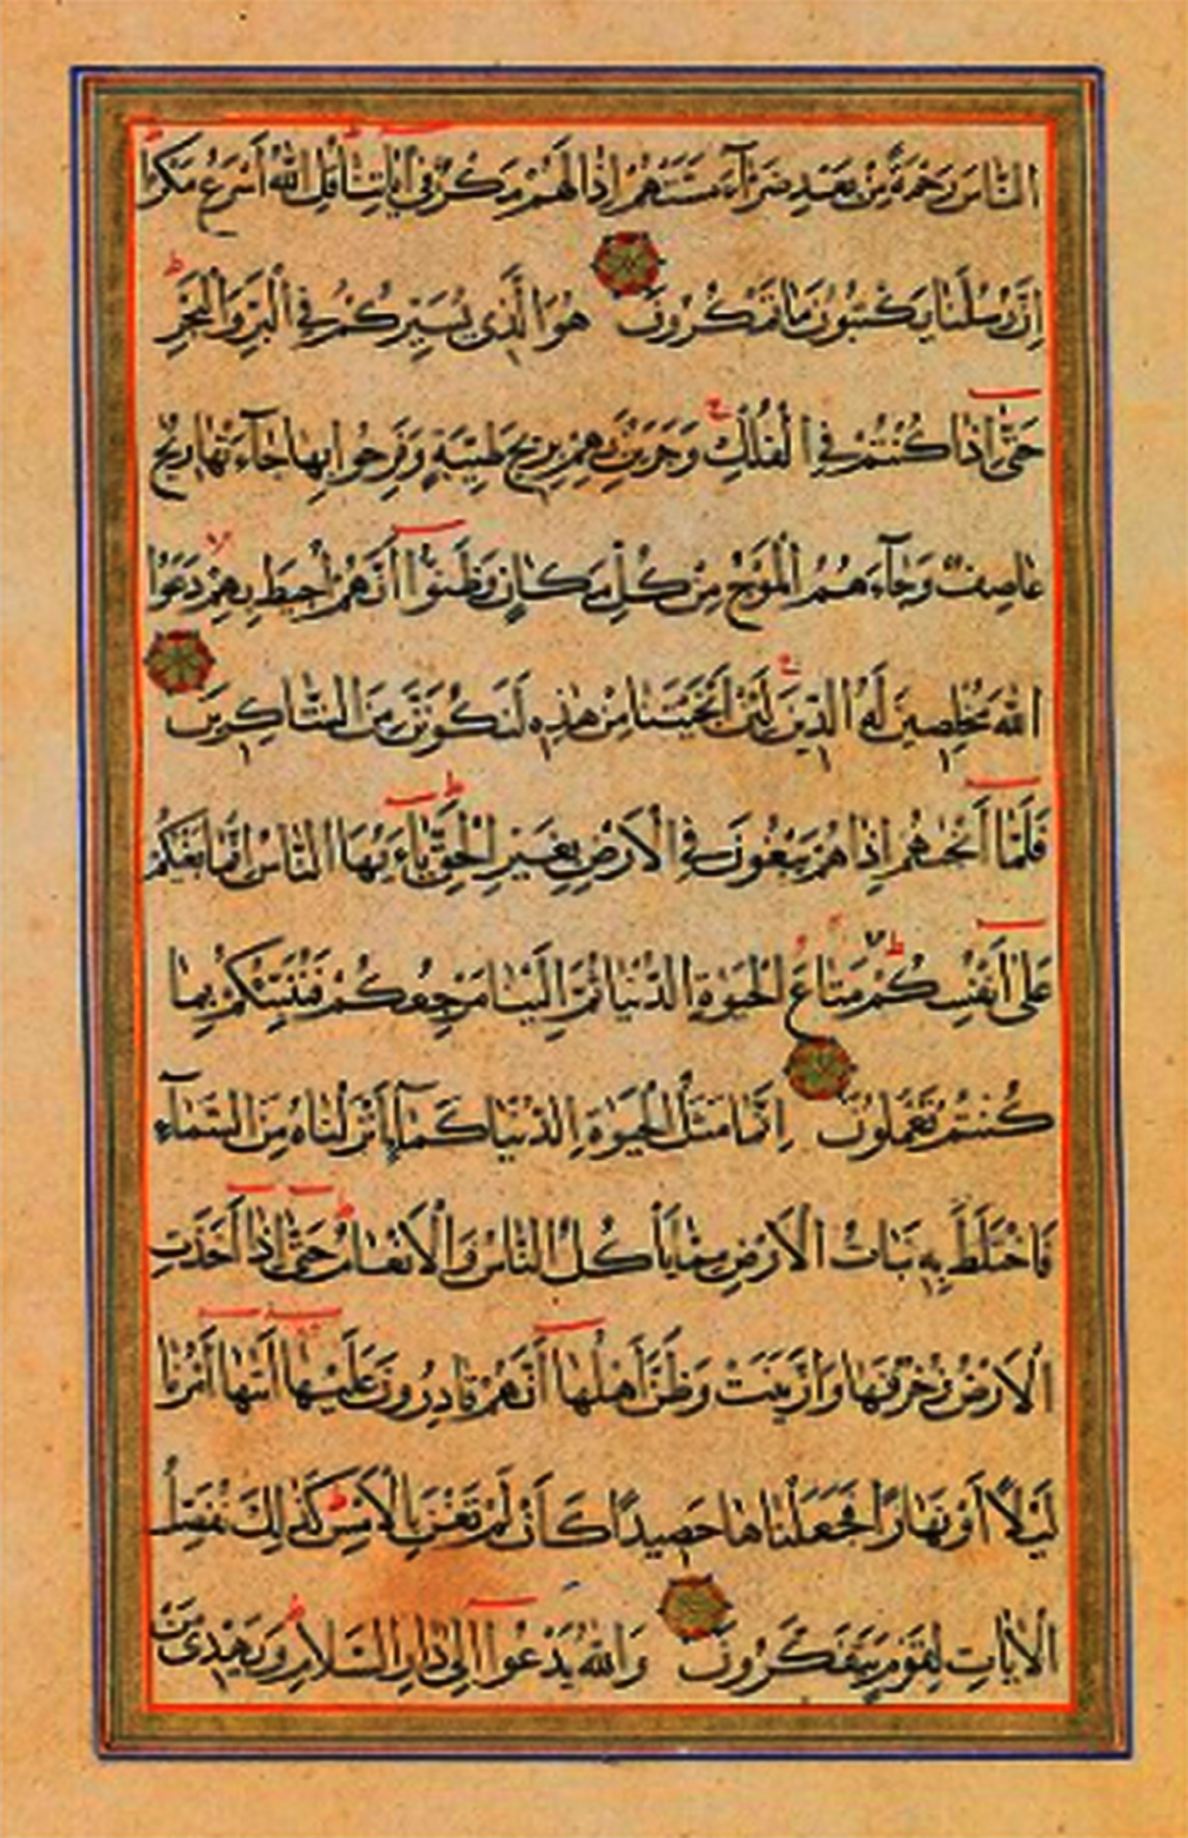 النَّاسَ رَحْمَةً مِنْ بَعْدِ ضَرَّآءَ مَسَّتْهُمْ اِذَا لَهُمْ مَكْرٌ فِى اٰيَاتِنَا قُلِ اللّٰهُ اَسْرَعُ مَكْرًا
اِنَّ رُسُلَنَا يَكْتُبُونَ مَا تَمْكُرُونَ هُوَ الَّذِى يُسَيِّرُكُمْ فِى الْبَرِّ وَالْبَحْرِ
حَتّٰى اِذَا كُنْتُمْ فِى الْفُلْكِ وَجَرَيْنَ بِهِمْ بِرِيحٍ طَيِّبَةٍ وَفَرِحُوا بِهَا جَآءَتْهَا رِيحٌ
عَاصِفٌ وَجَآءَهُمُ الْمَوْجُ مِنْ كُلِّ مَكَانٍ وَظَنُّوا اَنَّهُمْ اُحِيطَ بِهِمْ دَعَوُا
اللّٰهَ مُخْلِصِينَ لَهُ الدِّينَ لَئِنْ اَنْجَيْتَنَا مِنْ هٰذِهِ لَنَكُونَنَّ مِنَ الشَّاكِرِينَ
فَلَمَّا اَنْجٰيهُمْ اِذَا هُمْ يَبْغُونَ فِى الْاَرْضِ بِغَيْرِ الْحَقِّ يَاءَيُّهَا النَّاسُ اِنَّمَا بَغْيُكُمْ
عَلٰى اَنْفُسِكُمْ مَتَاعَ الْحَيٰوةِ الدُّنْيَا ثُمَّ اِلَيْنَا مَرْجِعُكُمْ فَنُنَبِّئُكُمْ بِمَا
كُنْتُمْ تَعْمَلُونَ اِنَّمَا مَثَلُ الْحَيٰوةِ الدُّنْيَا كَمَآءٍ اَنْزَلْنَاهُ مِنَ السَّمَآءِ
فَاخْتَلَطَ بِهِ نَبَاتُ الْاَرْضِ مِمَّا يَاْكُلُ النَّاسُ وَالْاَنْعَامُ حَتّٰى اِذَا اَخَذَتِ
الْاَرْضُ زُخْرُفَهَا وَازَّيَّنَتْ وَظَنَّ اَهْلُهَا اَنَّهُمْ قَادِرُونَ عَلَيْهَا اَتٰيهَا اَمْرُنَا
لَيْلًا اَوْ نَهَارًا فَجَعَلْنَاهَا حَصِيدًا كَاَنْ لَمْ تَغْنَ بِالْاَمْسِ كَذٰلِكَ نُفَصِّلُ
الْاٰيَاتِ لِقَوْمٍ يَتَفَكَّرُونَ وَاللّٰهُ يَدْعُوا اِلٰى دَارِ السَّلَامِ وَيَهْدِى مَنْ